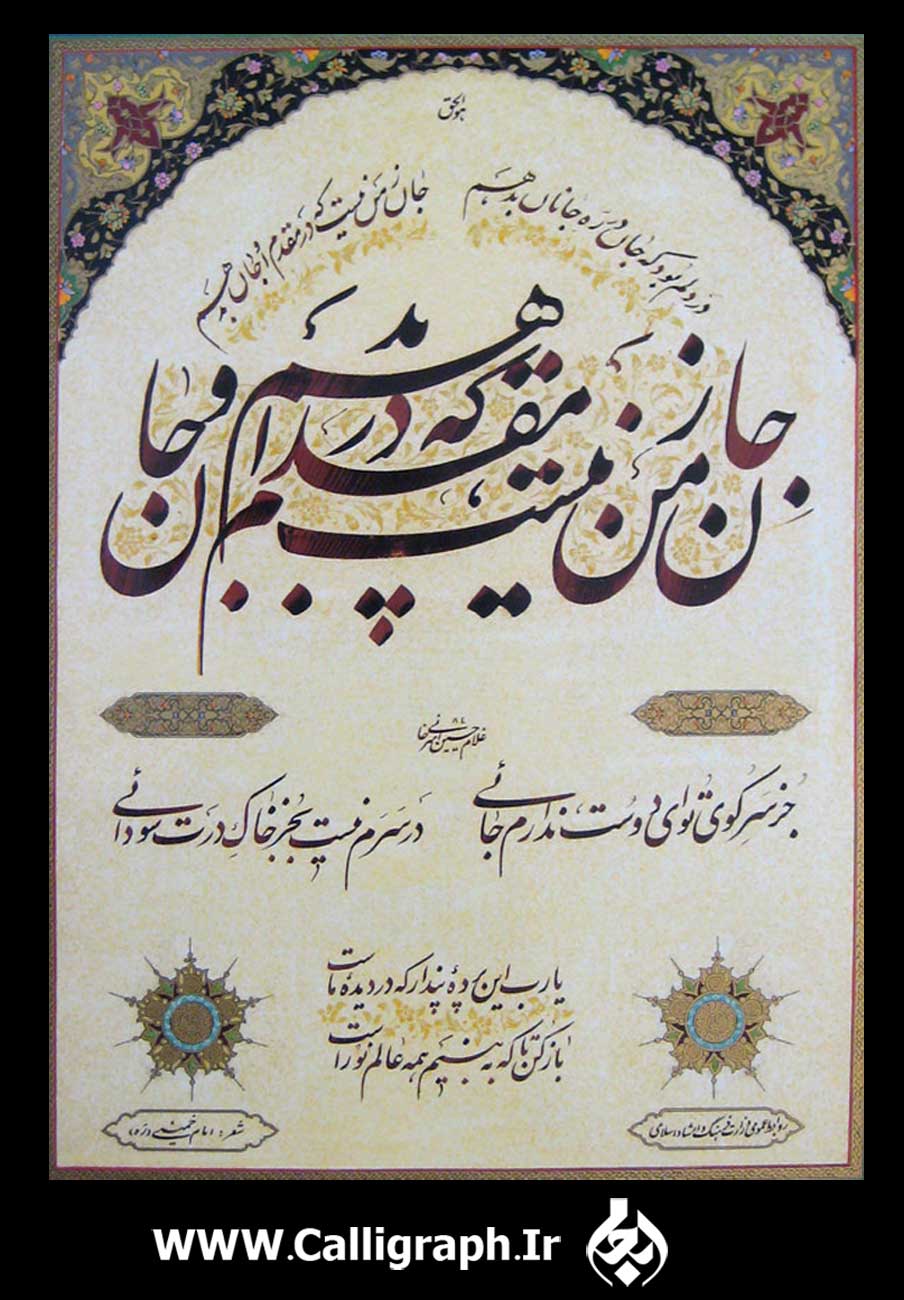 هوالحق
در دلم بود که جان در ره جانان بدهم
جان ز من نیست که در مقدم او جان بدهم
جان ز من نیست که در مقدم او جان بدهم
غلامحسین امیرخانی
جز سر کوی تو ای دوست ندارم جائی
در سرم نیست بجز خاک درت سودائی
یارب این پردهٔ پندار که در دیدهٔ ماست
باز کن تا که ببینیم همه عالم نور است
روابط عمومی وزارت فرهنگ و ارشاد اسلامی
شعر: امام خمینی «ره»
www.Calligraph.Ir